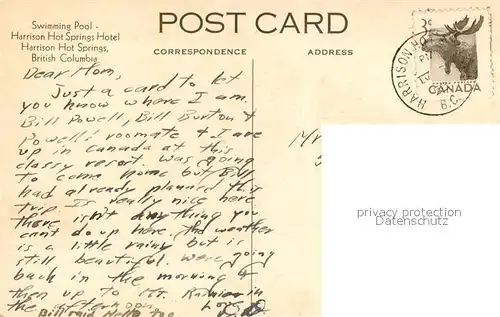 Swimming Pool -
Harrison Hot Springs Hotel
Harrison Hot Springs,
British Columbia
POST CARD
CORRESPONDENCE
ADDRESS
HARRISON HO
B.C.
CANADA
Dear Mom,
Just a card to let
you know where I am.
Bill Powell, Bill Burton &
Powell's roomate & I are
up in Canada at this
classy resort. Was going
to come home but Bill
had already planned this
trip. Is really nice here
There isn't anything you
cant do up here. The weather
is a little rainy but is
still beautiful. Were going
back in the morning &
then up to Mt. Rainier in
the afternoon. Love
Bill said Hello too
Mr
privacy protection
Datenschutz